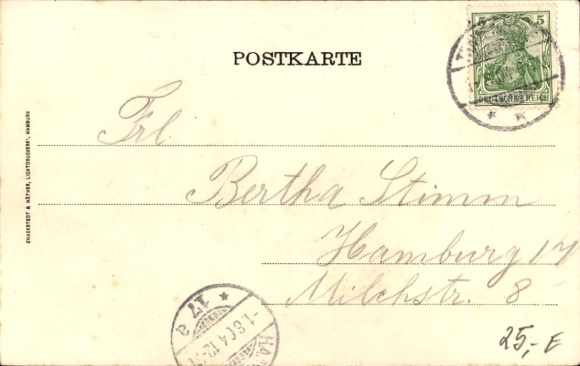 5 5
DEUTSCHES REICH
POSTKARTE
Frl.
Bertha Stimm
Hamburg 17
Milchstr. 8
KNACKSTEDT & NÄTHER, LICHTDRUCKEREI, HAMBURG
17 a
-1.8.04.12-
25,- E